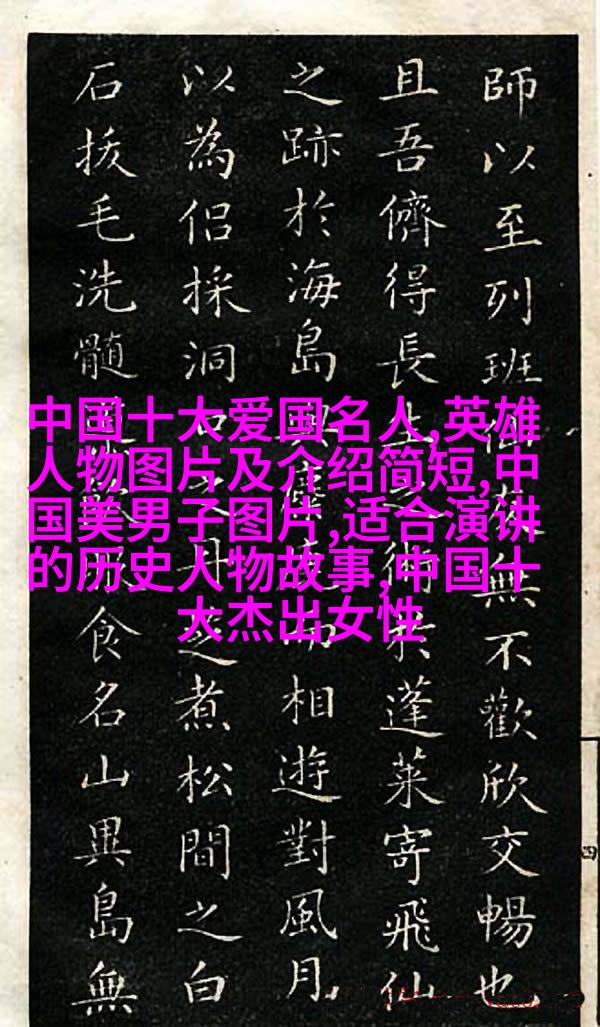 中国十大爱国名人,英雄
人物图片及介绍简短,中
国美男子图片,适合演讲
的历史人物故事,中国十
大杰出女性
師以至列班無不歡欣交暢也
且吾儕得長術蓬萊寄飛仙
之跡於海島塵相遊對風月
以為侶採洞之丹芝煮松間之白
石拔毛洗髓食名山異島無
四